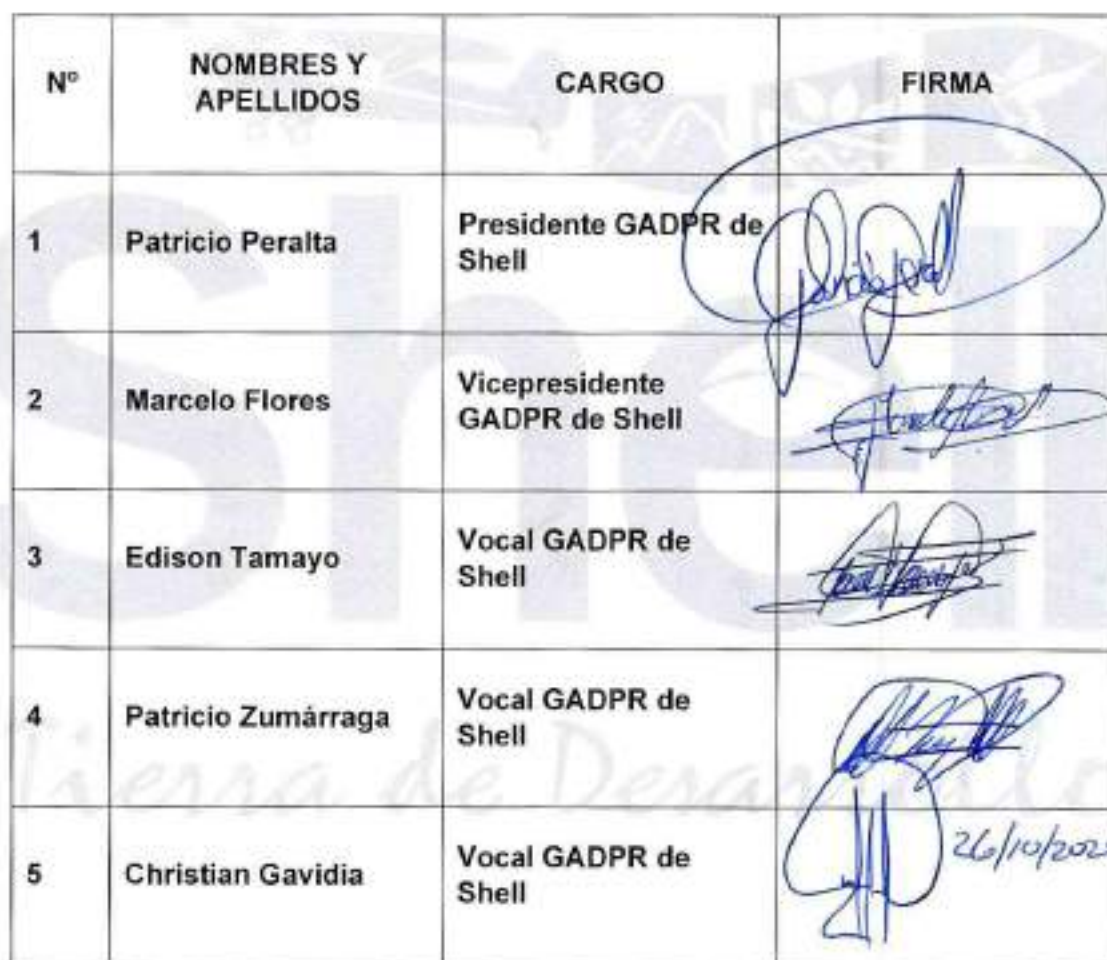 Nº
NOMBRES Y
APELLIDOS
CARGO
FIRMA
1
Patricio Peralta
Presidente GADPR de
Shell
2
Marcelo Flores
Vicepresidente
GADPR de Shell
3
Edison Tamayo
Vocal GADPR de
Shell
4
Patricio Zumárraga
Vocal GADPR de
Shell
5
Christian Gavidia
Vocal GADPR de
Shell
26/10/202
Shell
Tierra de Desarrollo